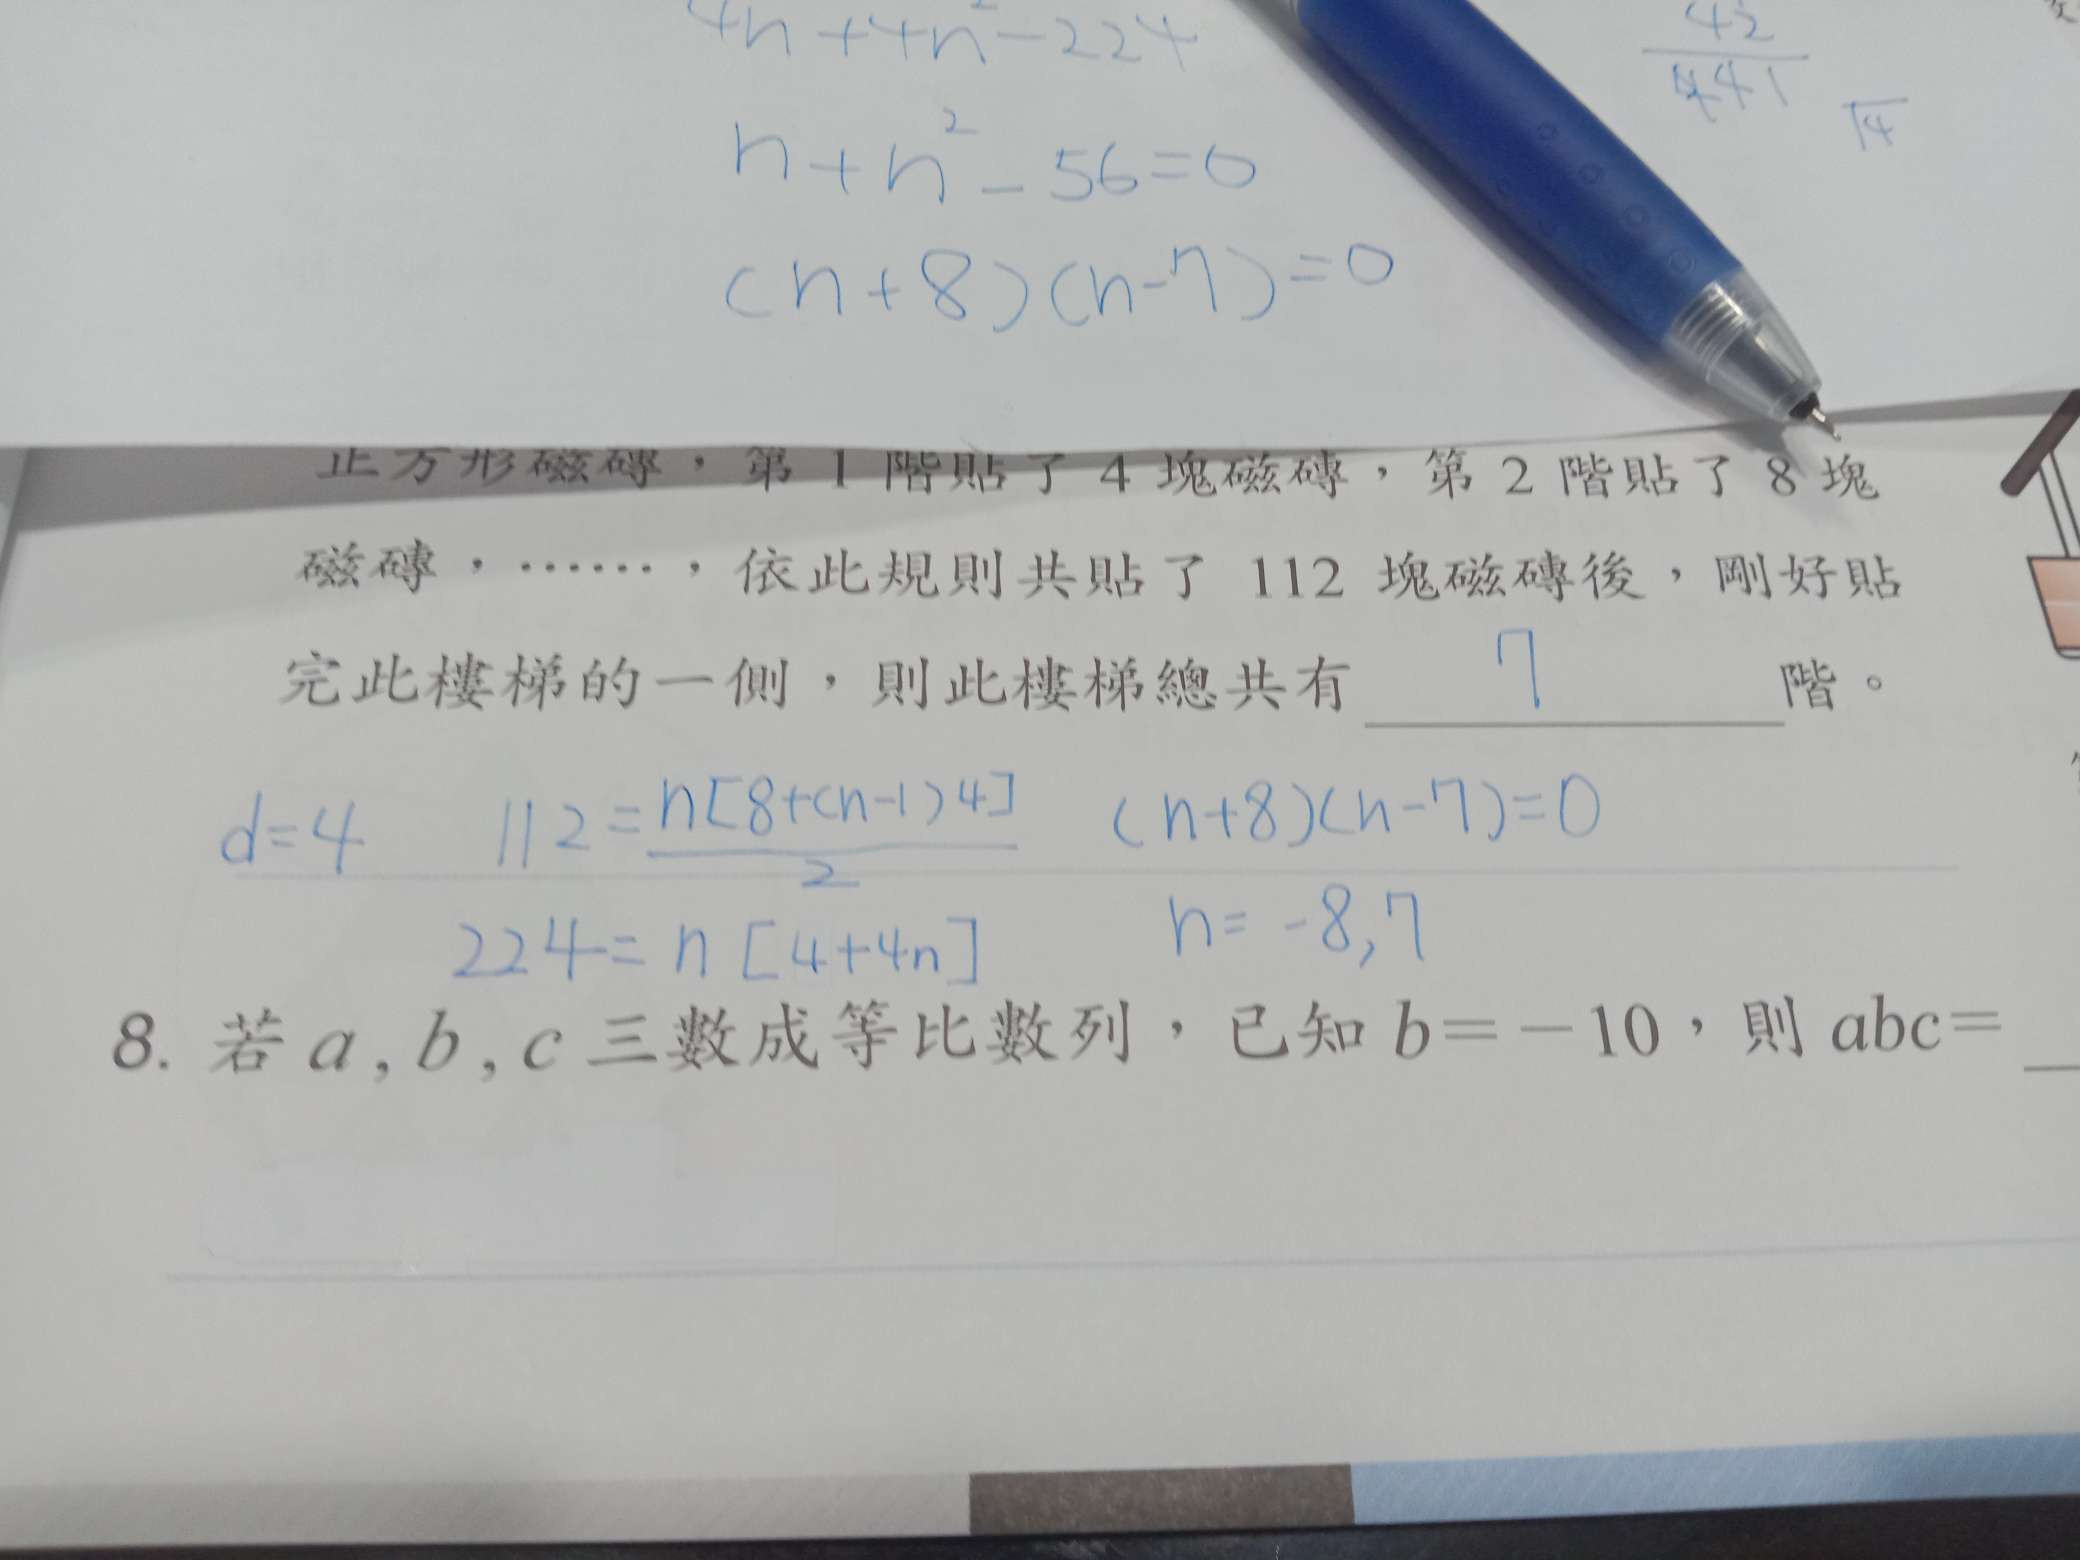 4n+4n²-224
n+n²-56=0
(n+8)(n-7)=0
42
441
√4
正方形磁磚，第 1 階貼了 4 塊磁磚，第 2 階貼了 8 塊
磁磚，……，依此規則共貼了 112 塊磁磚後，剛好貼
完此樓梯的一側，則此樓梯總共有 7 階。
d=4 112=n[8+(n-1)4]/2 (n+8)(n-7)=0
224=n[4+4n] n=-8,7
8. 若 a , b , c 三數成等比數列，已知 b=-10，則 abc=